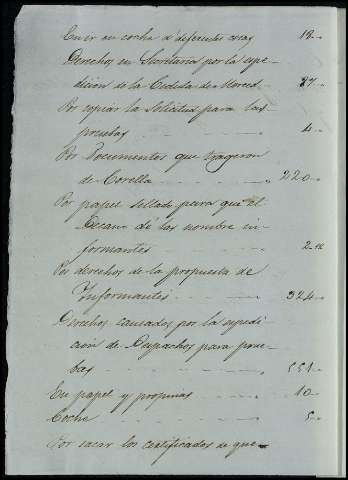 En ir en coche á diferentes cosas 18..
Derechos en Secretaria por la espe-
dicion de la Cedula de Merced 27..
Por copiar la Solicitud para las
pruebas 4..
Por Documentos que trageron
de Corella 220..
Por papel sellado para que el
Decano de las nombre in-
formantes 2..
Por derechos de la propuesta de
Informantes 324..
Derechos causados por la espedi-
cion de Despachos para prue-
bas 551..
En papel y propinas 10..
Coche 5..
Por sacar los certificados de que